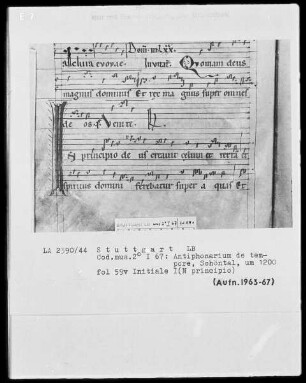 Dom̄ in lxx.
alleluia evovae. Invitat. Quoniam deus
magnus dominus Et rex magnus super omnes
deos. ps. Venite. R
IN principio deus creavit celum et terra et
spiritus domini ferebatur super aquas Et
LA 2390/44 Stuttgart LB
Cod.mus.2° I 67: Antiphonarium de tem-
pore, Schöntal, um 1200
fol 59v Initiale I(N principio)
(Aufn.1963-67)